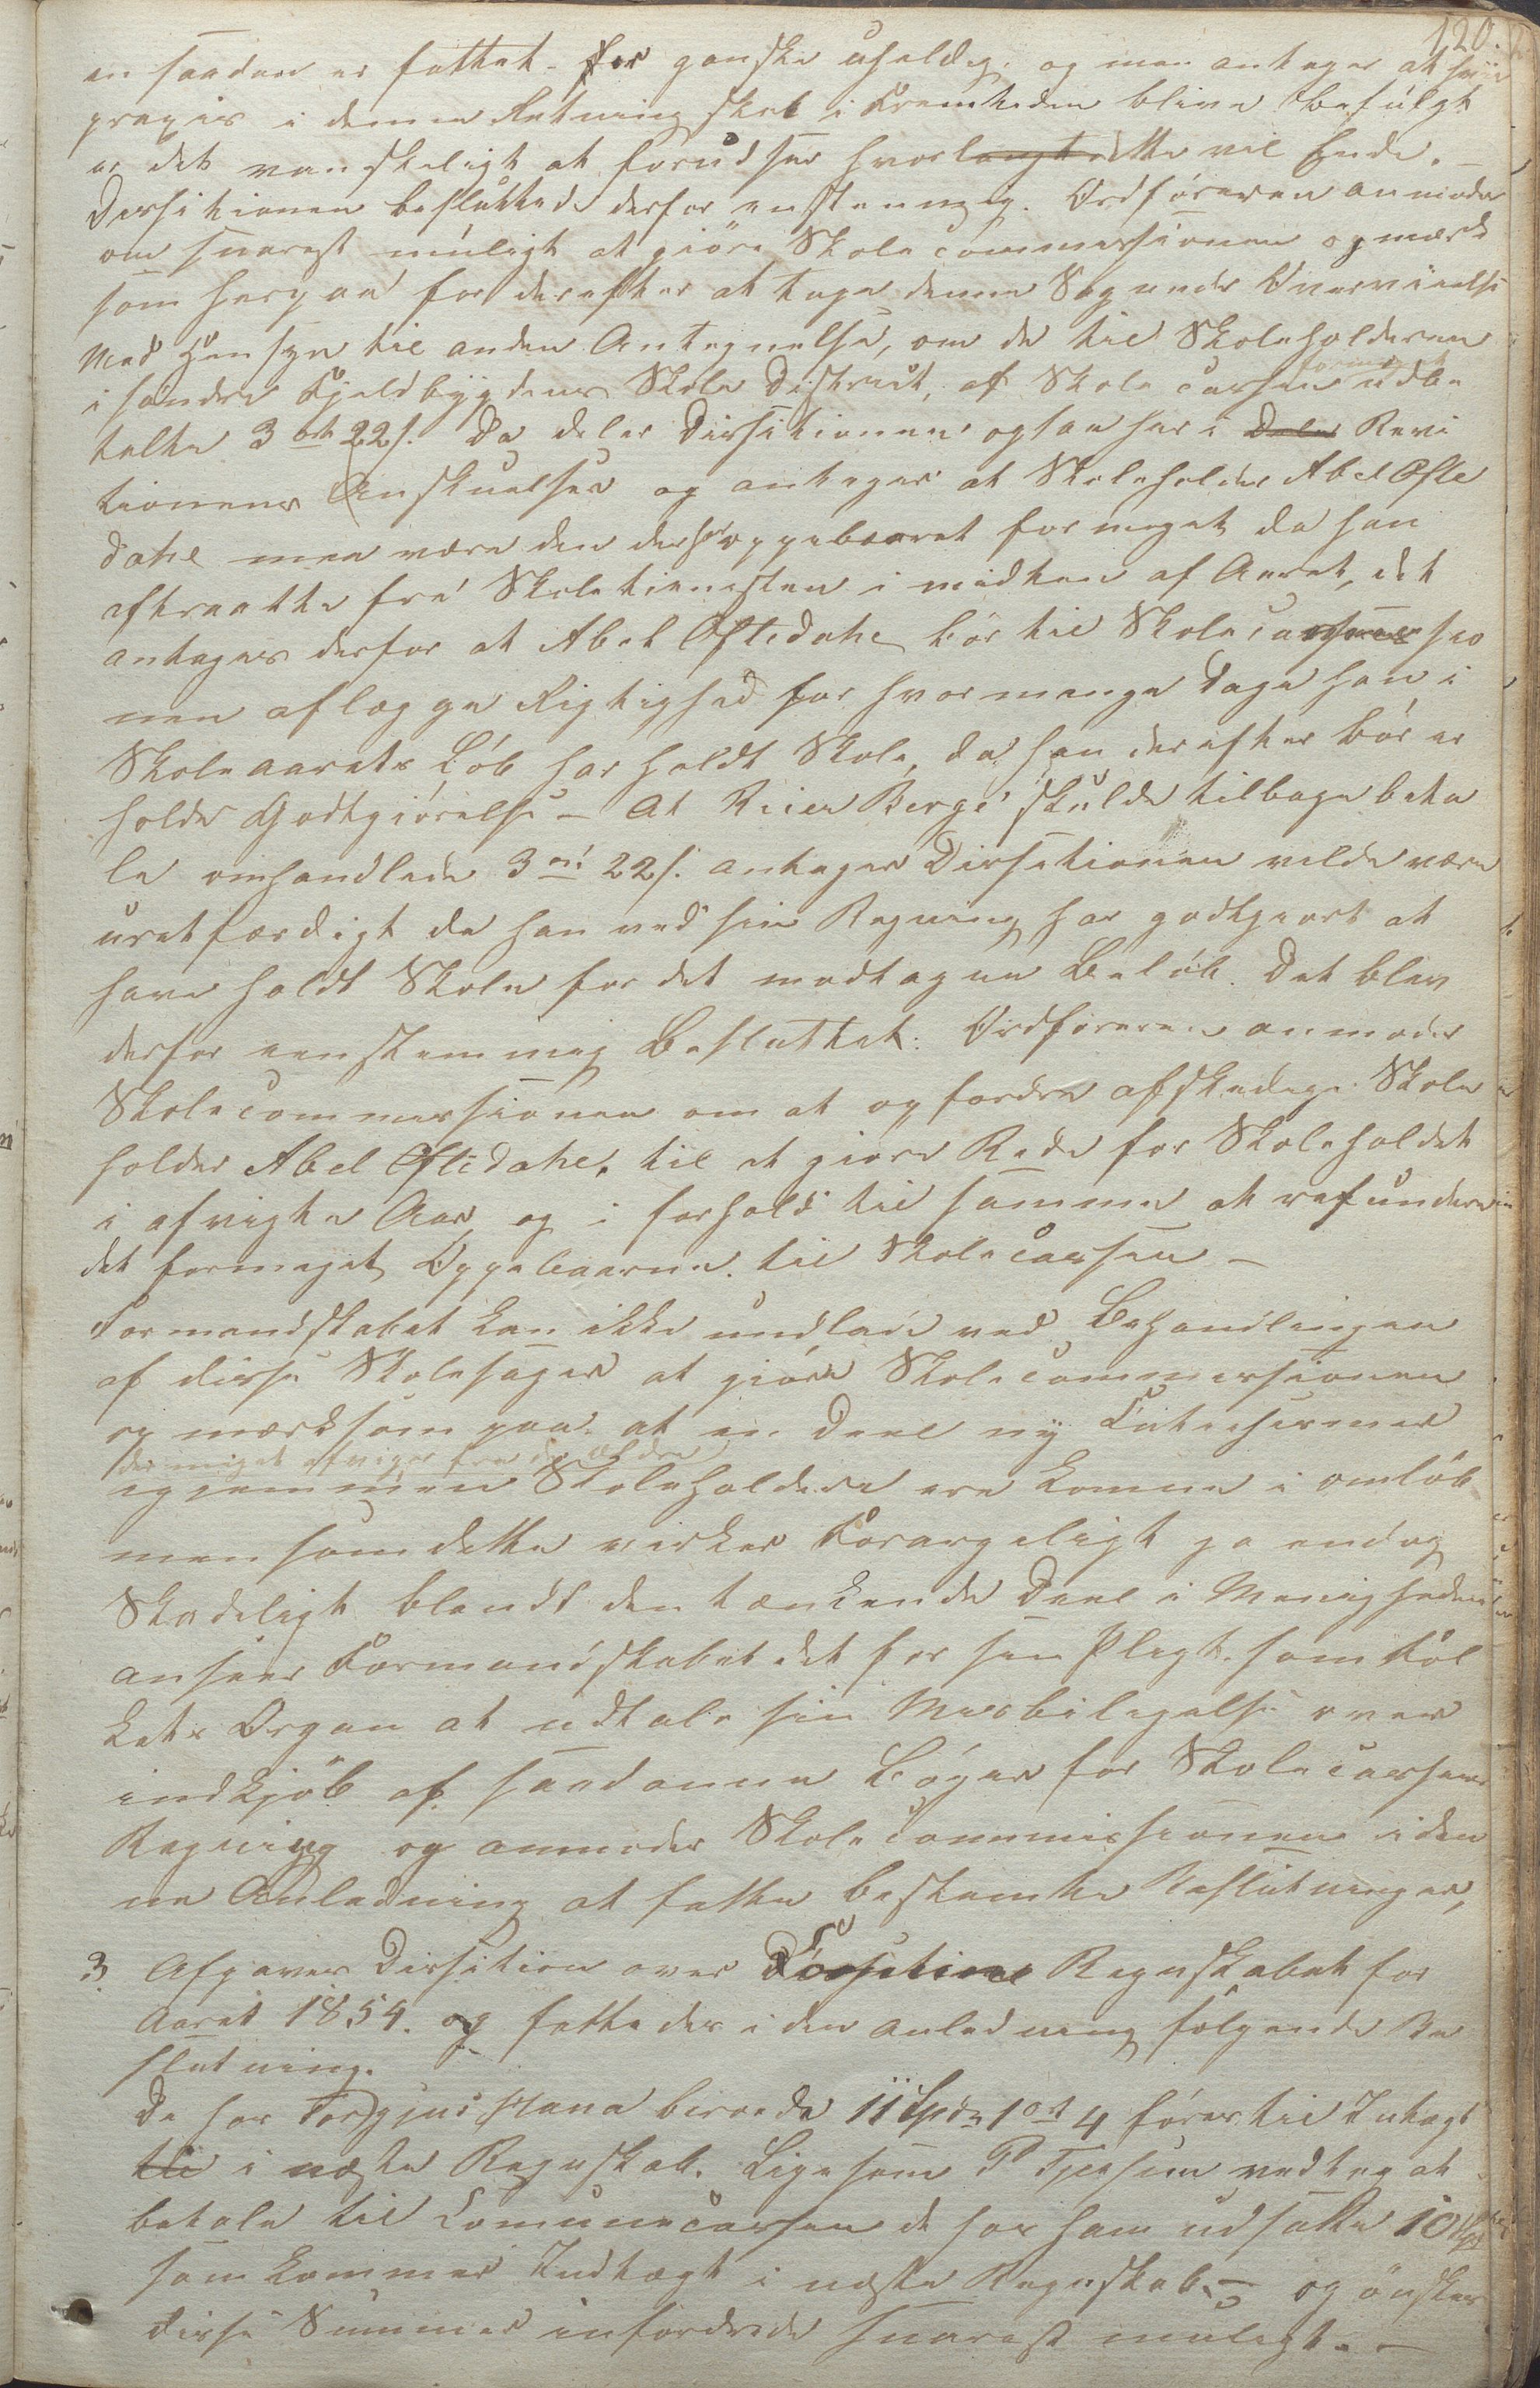 120.
en saadan er fattet. for ganske uheldig. og man antager at hvis
praxis i denne Retning skal i Fremtiden blive befulgt
er det vanskeligt at forudsee hvorlangt dette vil Ende. —
Dissitionen besluttede derfor enstemmig. Ordføreren anmoder
om snarest muligt at giöre Skolecommissionen opmærk
som herpaa for derefter at tage denne Sag under Overveielse
Med Hensyn til anden Antegnelse, om de til Skoleholderen
i söndre Fjeldbygdens Skole Distrikt, af Skolecassen formeget udbe
talte 3 ort 22 s. Da deler Dissitionen ogsaa her i Dele Revi
tionens Anskuelser og antager at Skoleholder Abel Ofte
dahl maa være den der har oppebaaret formeget da han
aftraatte fra Skoletienesten i midten af Aaret, det
antages derfor at Abel Oftedahl bör til Skolecommissio
nen aflægge Rigtighed for hvormange Dage han i
Skoleaarets Löb har holdt Skole, da han derefter bör er
holde Godtgiörelse — At Reier Berge skulde tilbagebeta
le omhandlede 3 ort 22 s. antager Dissitionen vilde være
uretfærdigt da han ved sin Regning har godtgiort at
have holdt Skole for det modtagne Belöb. Det blev
derfor eenstemmig Besluttet: Ordföreren anmoder
Skolecommissionen om at opfordre afskedige Skole
holder Abel Oftedahl, til at giöre Rede for Skoleholdet
i afvigte Aar, og i forhold til samme at refundere
det formeget Oppebaarne til Skolecassen —
Formandskabet kan ikke undlade ved Behandlingen
af disse Skolesager at giöre Skolecommissionen
opmærksom paa at en Deel ny Catechismer
der meget afviger fra de Ældre
igjennem Skoleholdere ere komne i omlöb
men som dette virker Forargeligt ja endog
Skadeligt blandt den tænkende Deel i Menigheden
anseer Formandskabet det for sin Pligt som Fol
kets Organ at udtale sin Misbiligelse over
indkjöb af saadanne Böger for Skolecassens
Regning og anmoder Skolecommissionen i den
ne Anledning at fatte bestemte Beslutninger,
3 Afgaves Dissition over Regnskabet for
Aaret 1854. og fattedes i den anledning følgende Be
slutning.
De hos Torgjus beroede 11 Spd 1 ort 4 föres til Intægt
til i næste Regnskab. Ligesom P vedtog at
betale til Communecassen de hos ham udsatte 10 Spd
som kommer Indtægt i næste Regnskab. — og önskes
disse Summer infordrede snarest muligt. —